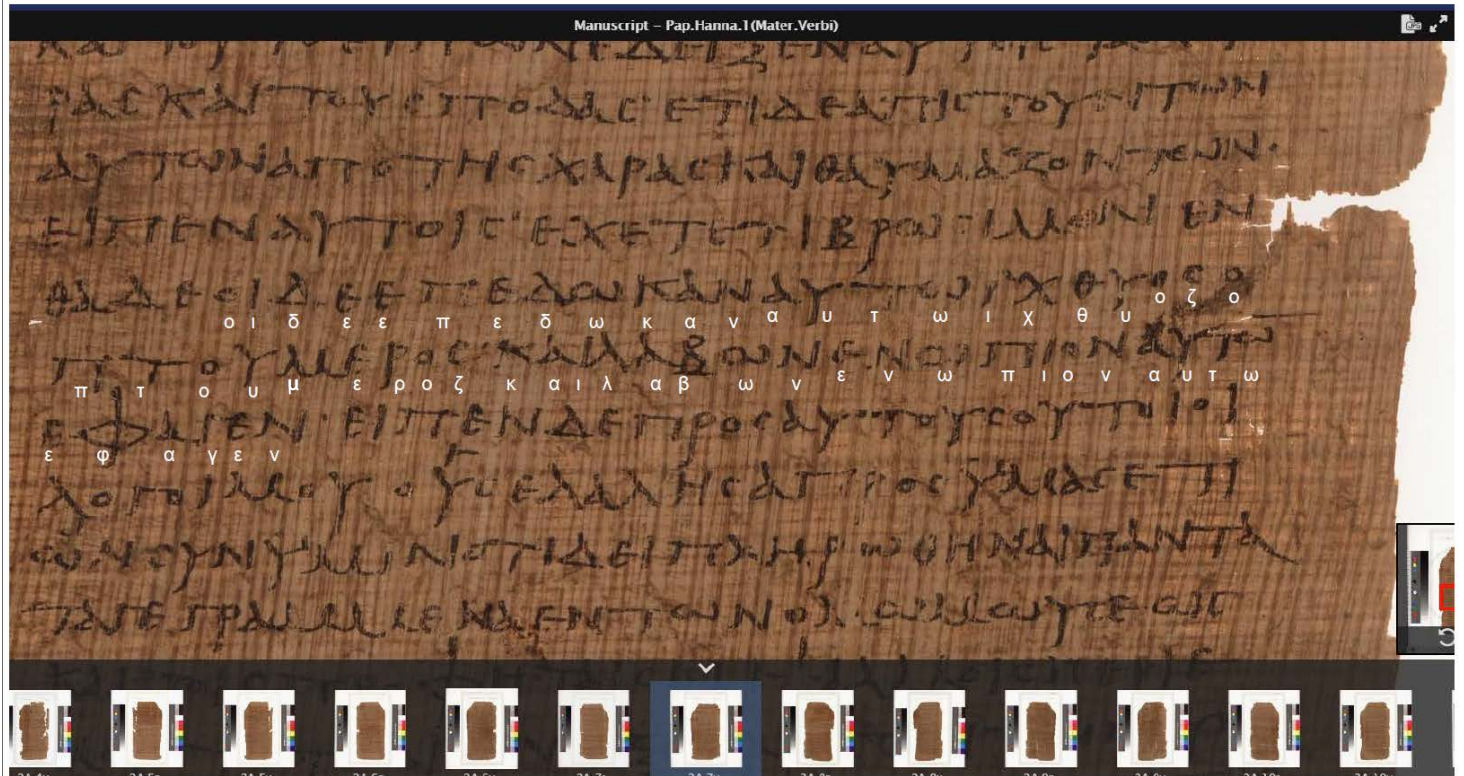 Manuscript – Pap.Hanna.1(Mater.Verbi)
ΡΑϹΚΑΙΤΟΥϹΠΟΔΑϹΕΤΙΔΕΑΠΙϹΤΟΥΝΤΩΝ
ΑΥΤΩΝΑΠΟΤΗϹΧΑΡΑϹΚΑΙΘΑΥΜΑΖΟΝΤΩΝ·
ΕΙΠΕΝΑΥΤΟΙϹΕΧΕΤΕΤΙΒΡΩϹΙΜΟΝΕΝ
ΘΑΔΕΟΙΔΕΕΠΕΔΩΚΑΝΑΥΤΩΙΧΘΥΟϹΟ
ο ι δ ε ε π ε δ ω κ α ν α υ τ ω ι χ θ υ ο ζ ο
ΠΤΟΥΜΕΡΟϹΚΑΙΛΑΒΩΝΕΝΩΠΙΟΝΑΥΤΩ
π τ ο υ μ ε ρ ο ζ κ α ι λ α β ω ν ε ν ω π ι ο ν α υ τ ω
ΕΦΑΓΕΝ·ΕΙΠΕΝΔΕΠΡΟϹΑΥΤΟΥϹΟΥΤΟΙΟΙ
ε φ α γ ε ν
ΛΟΓΟΙΜΟΥΟΥϹΕΛΑΛΗϹΑΠΡΟϹΥΜΑϹΕΤΙ
ΩΝϹΥΝΥΜΙΝΟΤΙΔΕΙΠΛΗΡΩΘΗΝΑΙΠΑΝΤΑ
ΤΑΓΕΓΡΑΜΜΕΝΑΕΝΤΩΝΟΜΩΜΩΥϹΕΩϹ